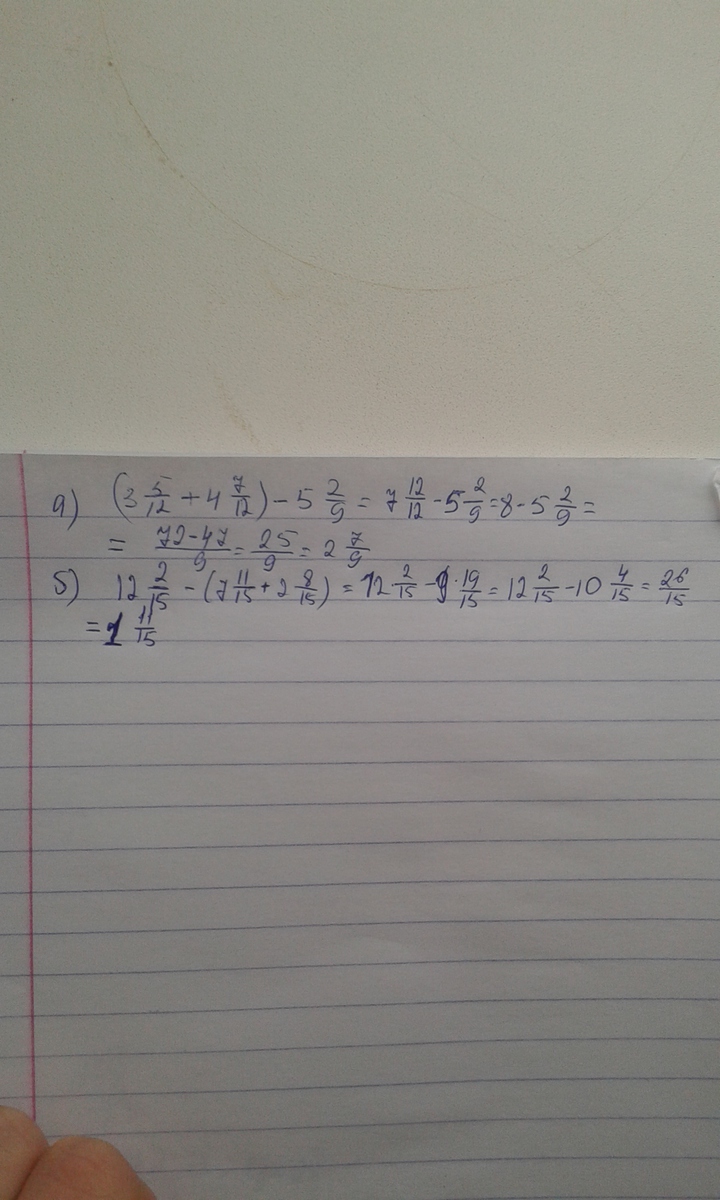 а) (3 5/12 + 4 7/12) - 5 2/9 = 7 12/12 - 5 2/9 = 8 - 5 2/9 =
= 72-47/9 = 25/9 = 2 7/9
б) 12 2/15 - (7 11/15 + 2 8/15) = 12 2/15 - 9 19/15 = 12 2/15 - 10 4/15 = 26/15
= 1 11/15